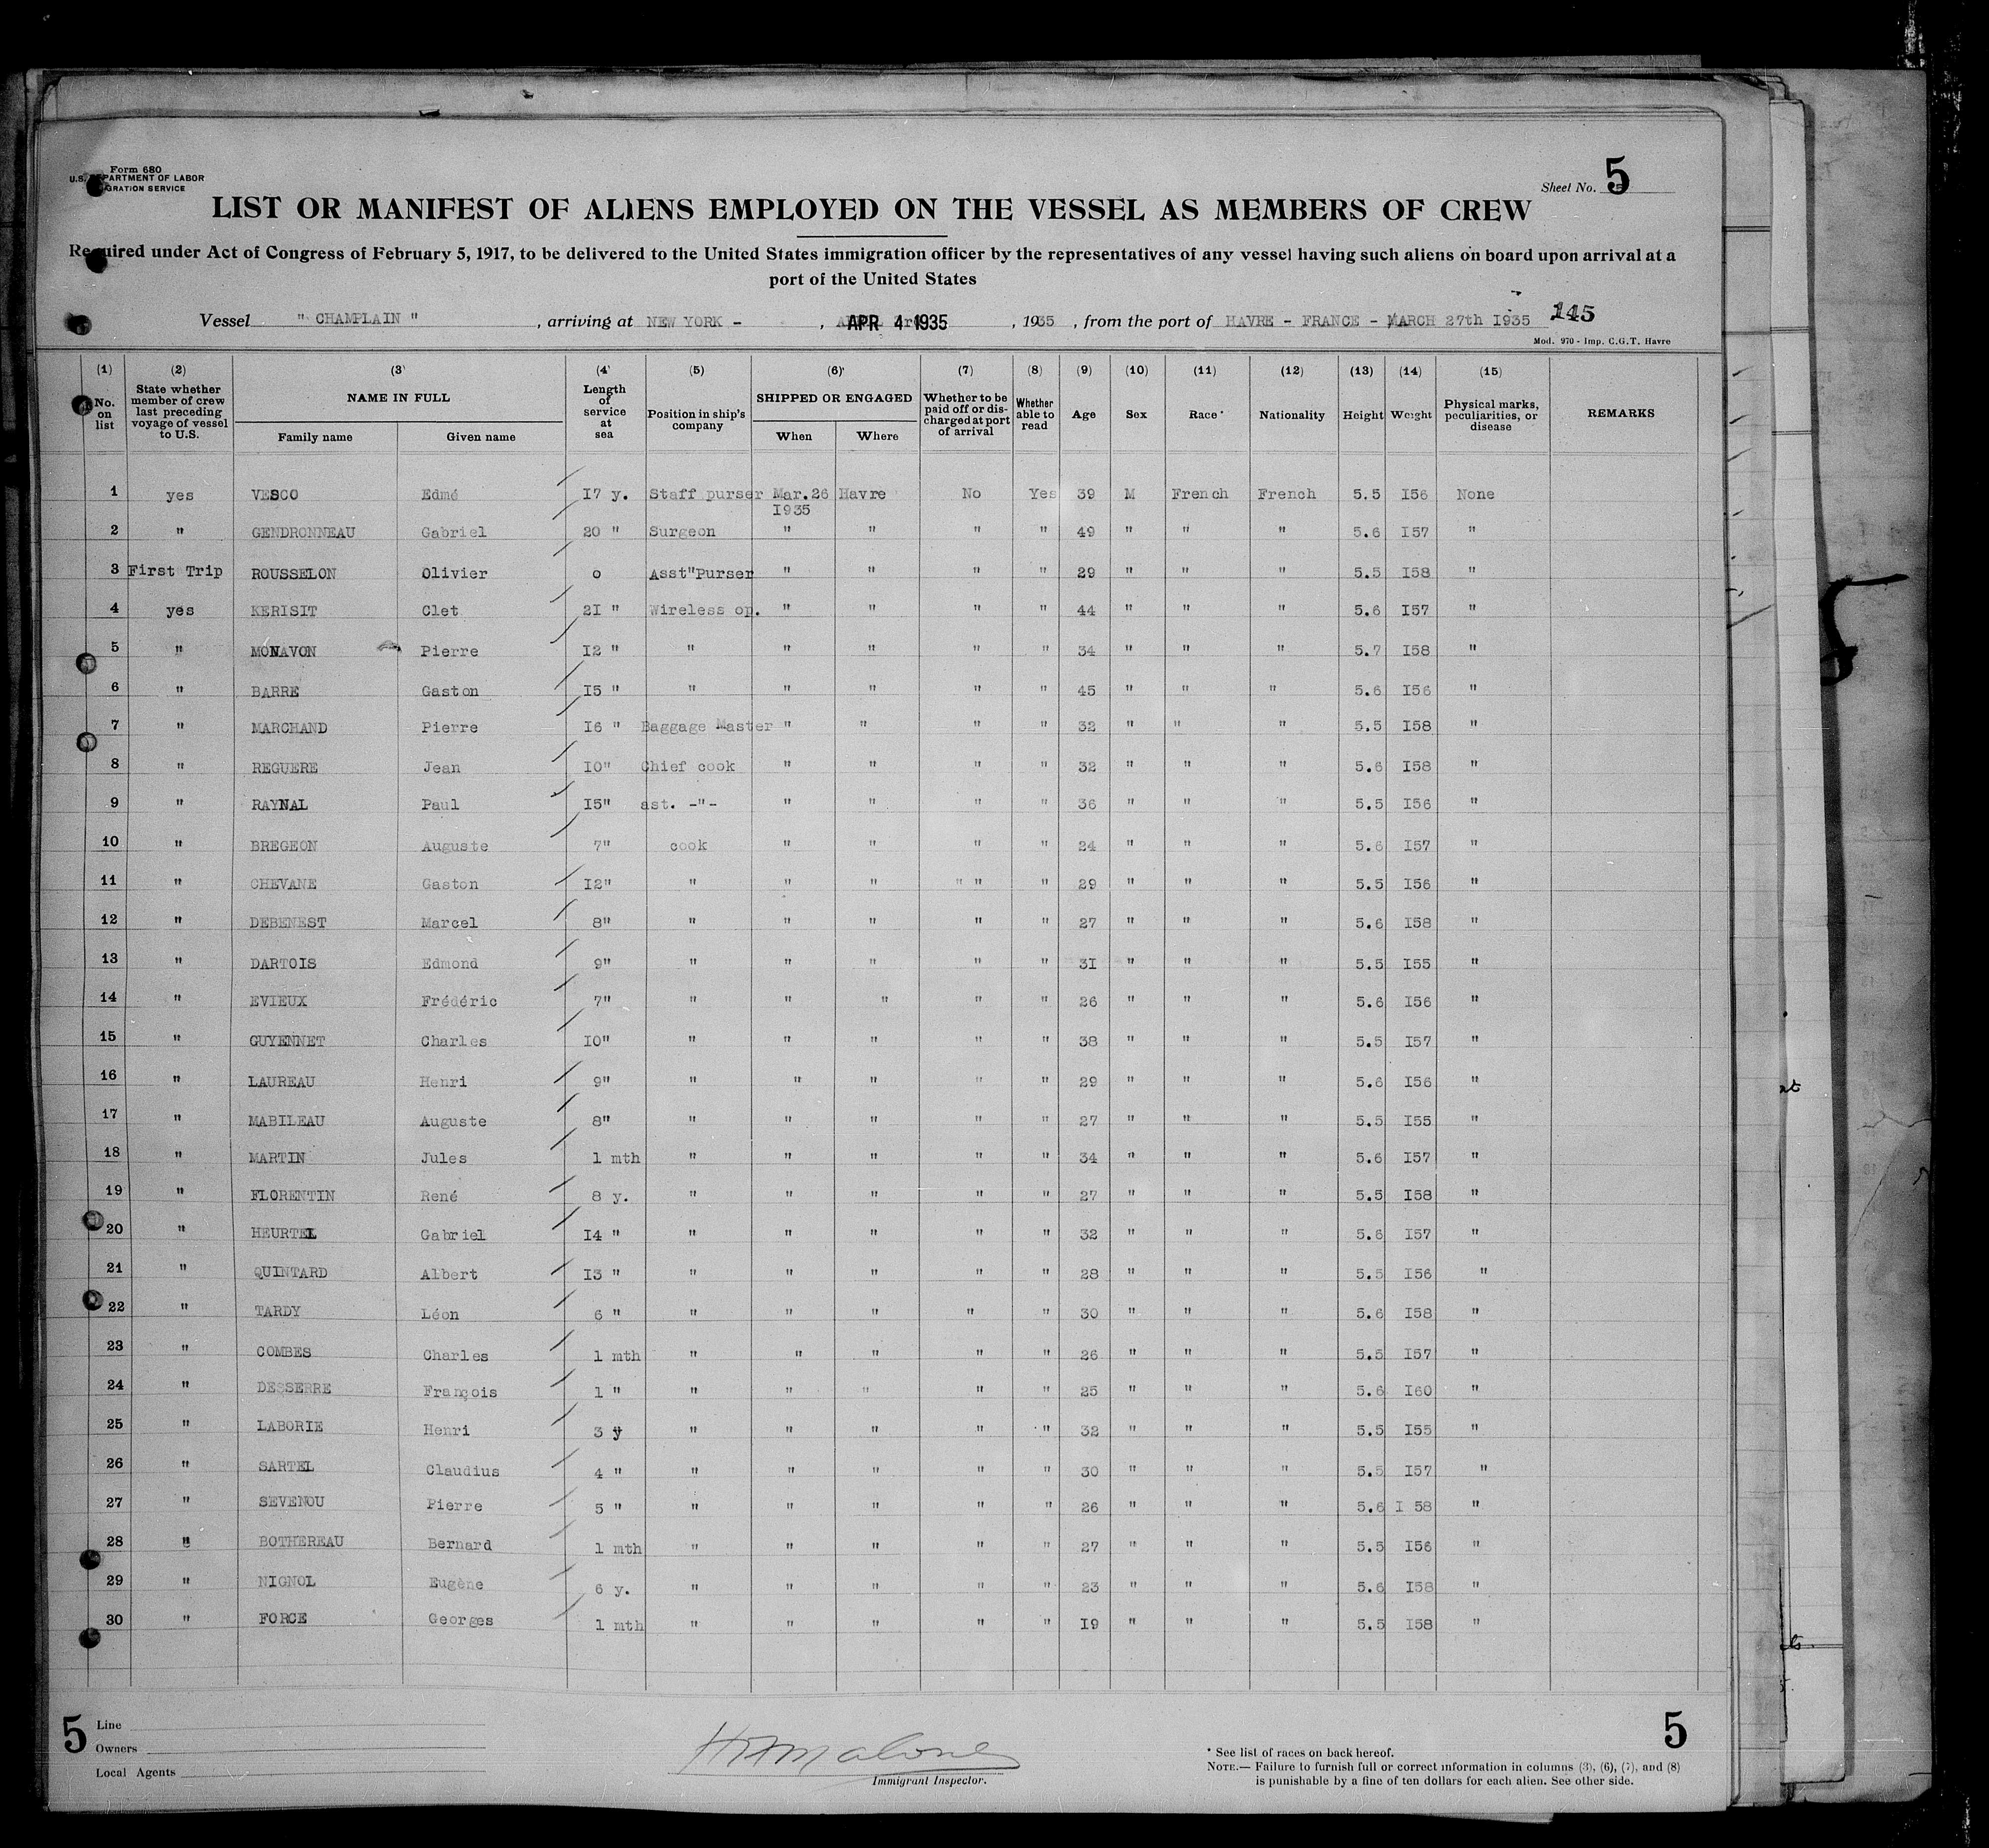 Form 680
U.S. DEPARTMENT OF LABOR
IMMIGRATION SERVICE
Sheet No. 5
LIST OR MANIFEST OF ALIENS EMPLOYED ON THE VESSEL AS MEMBERS OF CREW
Required under Act of Congress of February 5, 1917, to be delivered to the United States immigration officer by the representatives of any vessel having such aliens on board upon arrival at a
port of the United States
Vessel " CHAMPLAIN " , arriving at NEW YORK - , APR 4 1935 , 1935 , from the port of HAVRE - FRANCE - MARCH 27th I935 145
Mod. 970 - Imp. C.G.T. Havre
(1) (2) (3) (4) (5) (6) (7) (8) (9) (10) (11) (12) (13) (14) (15)
No. on list State whether member of crew last preceding voyage of vessel to U.S. NAME IN FULL Family name Given name Length of service at sea Position in ship's company SHIPPED OR ENGAGED When Where Whether to be paid off or discharged at port of arrival Whether able to read Age Sex Race * Nationality Height Weight Physical marks, peculiarities, or disease REMARKS
1 yes VESCO Edmé I7 y. Staff purser Mar.26 I935 Havre No Yes 39 M French French 5.5 I56 None
2 " GENDRONNEAU Gabriel 20 " Surgeon " " " " 49 " " " 5.6 I57 "
3 First Trip ROUSSELON Olivier o Asst"Purser " " " " 29 " " " 5.5 I58 "
4 yes KERISIT Clet 2I " Wireless op. " " " " 44 " " " 5.6 I57 "
5 " MONAVON Pierre I2 " " " " " " 34 " " " 5.7 I58 "
6 " BARRE Gaston I5 " " " " " " 45 " " " 5.6 I56 "
7 " MARCHAND Pierre I6 " Baggage Master " " " " 32 " " " 5.5 I58 "
8 " REGUERE Jean I0" Chief cook " " " " 32 " " " 5.6 I58 "
9 " RAYNAL Paul I5" ast. -"- " " " " 36 " " " 5.5 I56 "
10 " BREGEON Auguste 7" cook " " " " 24 " " " 5.6 I57 "
11 " CHEVANE Gaston I2" " " " " " " 29 " " " 5.5 I56 "
12 " DEBENEST Marcel 8" " " " " " 27 " " " 5.6 I58 "
13 " DARTOIS Edmond 9" " " " " " 3I " " " 5.5 I55 "
14 " EVIEUX Frédéric 7" " " " " " 26 " " " 5.6 I56 "
15 " GUYENNET Charles I0" " " " " " 38 " " " 5.5 I57 "
16 " LAUREAU Henri 9" " " " " " 29 " " " 5.6 I56 "
17 " MABILEAU Auguste 8" " " " " " 27 " " " 5.5 I55 "
18 " MARTIN Jules 1 mth " " " " " 34 " " " 5.6 I57 "
19 " FLORENTIN René 8 y. " " " " " 27 " " " 5.5 I58 "
20 " HEURTEL Gabriel I4 " " " " " " 32 " " " 5.6 I57 "
21 " QUINTARD Albert I3 " " " " " " 28 " " " 5.5 I56 "
22 " TARDY Léon 6 " " " " " " 30 " " " 5.6 I58 "
23 " COMBES Charles 1 mth " " " " " 26 " " " 5.5 I57 "
24 " DESSERRE François 1 " " " " " " 25 " " " 5.6 I60 "
25 " LABORIE Henri 3 y " " " " " 32 " " " 5.5 I55 "
26 " SARTEL Claudius 4 " " " " " " 30 " " " 5.5 I57 "
27 " SEVENOU Pierre 5 " " " " " " 26 " " " 5.6 I 58 "
28 " BOTHEREAU Bernard 1 mth " " " " " 27 " " " 5.5 I56 "
29 " NIGNOL Eugène 6 y. " " " " " 23 " " " 5.6 I58 "
30 " FORCE Georges 1 mth " " " " " I9 " " " 5.5 I58 "
5 Line
Owners
Local Agents
Immigrant Inspector.
* See list of races on back hereof.
NOTE.— Failure to furnish full or correct information in columns (3), (6), (7), and (8)
is punishable by a fine of ten dollars for each alien. See other side.
5